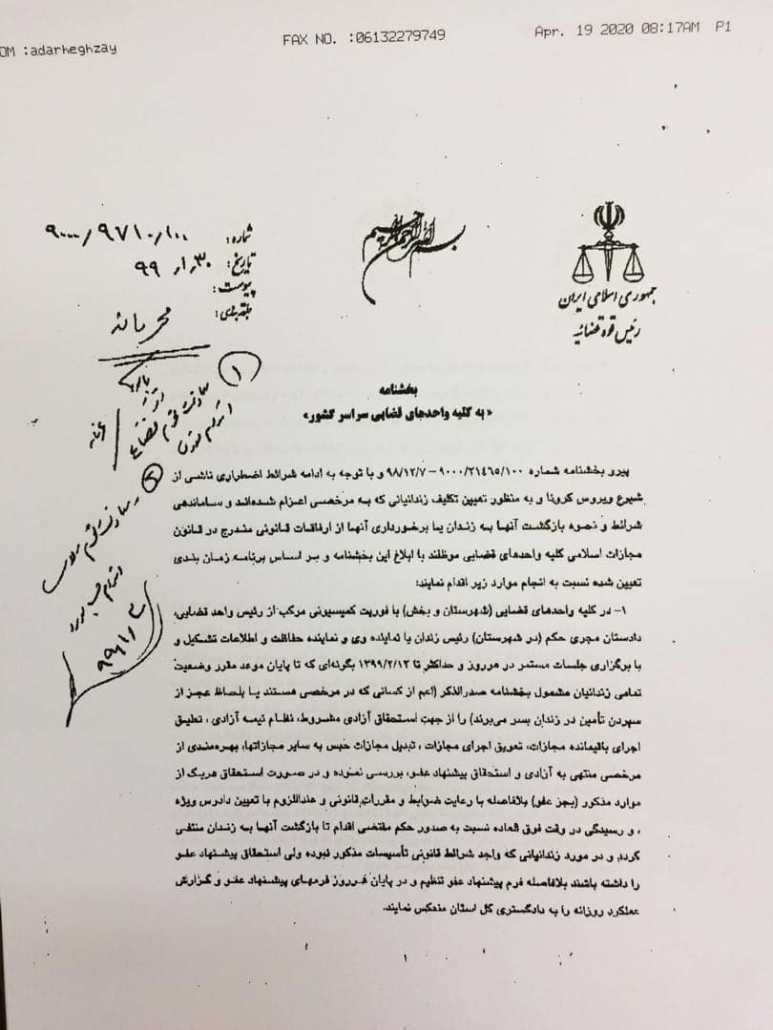 OM :adarheghzay
FAX NO. :06132279749
Apr. 19 2020 08:17AM P1
بسم الله الرحمن الرحیم
جمهوری اسلامی ایران
رئیس قوه قضائیه
شماره: ۹۰۰۰/۹۷۱۰/۱۰۰
تاریخ: ۹۹/۱/۳۰
پیوست:
طبقه‌بندی:
محرمانه
۱
۲
بخشنامه
«به کلیه واحدهای قضایی سراسر کشور»
پیرو بخشنامه شماره ۹۰۰۰/۲۱۴۶۵/۱۰۰ – ۹۸/۱۲/۷ و با توجه به ادامه شرائط اضطراری ناشی از
شیوع ویروس کرونا و به منظور تعیین تکلیف زندانیانی که به مرخصی اعزام شده‌اند و ساماندهی
شرائط و نحوه بازگشت آنها به زندان یا برخورداری آنها از ارفاقات قانونی مندرج در قانون
مجازات اسلامی کلیه واحدهای قضایی موظفند با ابلاغ این بخشنامه و بر اساس برنامه زمان بندی
تعیین شده نسبت به انجام موارد زیر اقدام نمایند:
۱- در کلیه واحدهای قضایی (شهرستان و بخش) با فوریت کمیسیونی مرکب از رئیس واحد قضایی،
دادستان مجری حکم (در شهرستان) رئیس زندان یا نماینده وی و نماینده حفاظت و اطلاعات تشکیل و
با برگزاری جلسات مستمر در هرروز و حداکثر تا ۱۳۹۹/۲/۱۳ بگونه‌ای که تا پایان موعد مقرر وضعیت
تمامی زندانیان مشمول بخشنامه صدرالذکر (اعم از کسانی که در مرخصی هستند یا بلحاظ عجز از
سپردن تأمین در زندان بسر می‌برند) را از جهت استحقاق آزادی مشروط، نظام نیمه آزادی ، تعلیق
اجرای باقیمانده مجازات، تعویق اجرای مجازات ، تبدیل مجازات حبس به سایر مجازاتها، بهره‌مندی از
مرخصی منتهی به آزادی و استحقاق پیشنهاد عفو، بررسی نموده و در صورت استحقاق هریک از
موارد مذکور (بجز عفو) بلافاصله با رعایت ضوابط و مقررات قانونی و عنداللزوم با تعیین دادرس ویژه
، و رسیدگی در وقت فوق العاده نسبت به صدور حکم مقتضی اقدام تا بازگشت آنها به زندان منتفی
گردد و در مورد زندانیانی که واجد شرائط قانونی تأسیسات مذکور نبوده ولی استحقاق پیشنهاد عفو
را داشته باشند بلافاصله فرم پیشنهاد عفو تنظیم و در پایان هرروز فرمهای پیشنهاد عفو و گزارش
عملکرد روزانه را به دادگستری کل استان منعکس نمایند.